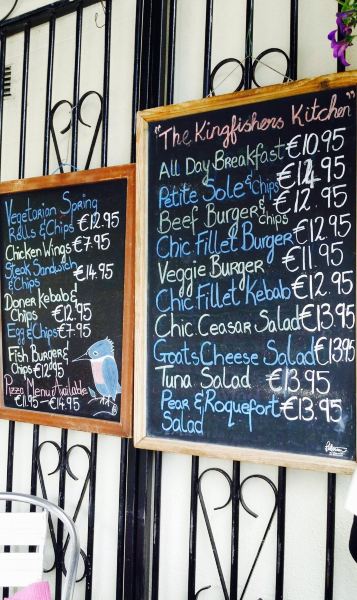 Vegetarian Spring
Rolls & Chips €12.95
Chicken Wings €7.95
Steak Sandwich
& Chips €14.95
Doner Kebab &
Chips €12.95
Egg & Chips €7.95
Fish Burger &
Chips €12.95
Pizza Menu Available
€11.95 - €14.95
"The Kingfishers Kitchen"
All Day Breakfast €10.95
Petite Sole & Chips €12.95
Beef Burger & Chips €12.95
Chic Fillet Burger €12.95
Veggie Burger €11.95
Chic Fillet Kebab €12.95
Chic Ceasar Salad €13.95
Goats Cheese Salad €13.95
Tuna Salad €13.95
Pear & Roquefort €13.95
Salad